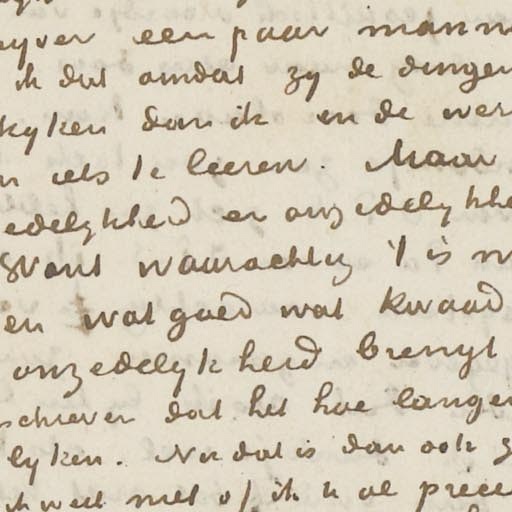 yver een paar mann
ik dat omdat zy de dingen
kyken dan ik en de wer
n iets te leeren. Maar
edelykheid en onzedelykhe
Want waarachtig 't is n
en wat goed wat kwaad
onzedelykheid brengt
schreven dat het hoe langer
lyken. Nu dat is dan ook g
ik weet niet of ik U al precie